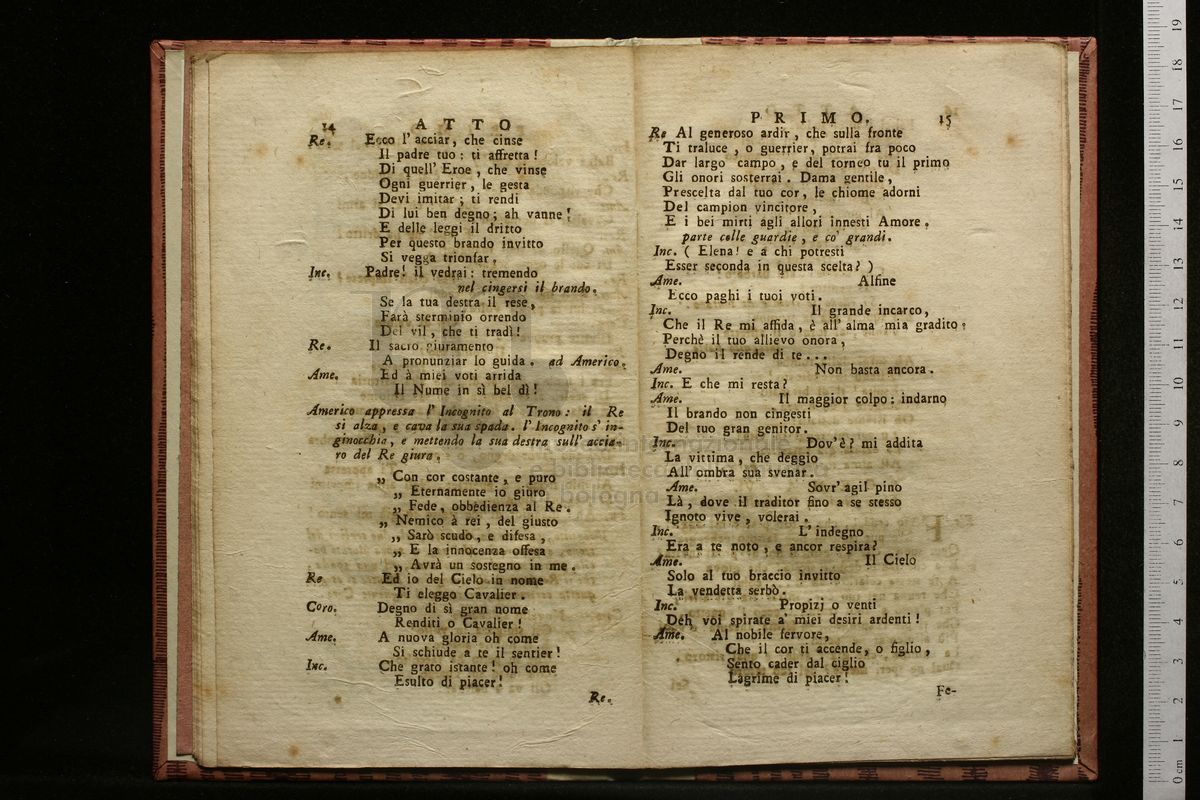 14 ATTO
Re. Ecco l' acciar, che cinse
Il padre tuo: ti affretta!
Di quell' Eroe, che vinse
Ogni guerrier, le gesta
Devi imitar; ti rendi
Di lui ben degno; ah vanne!
E delle leggi il dritto
Per questo brando invitto
Si vegga trionfar.
Inc. Padre! il vedrai: tremendo
nel cingersi il brando.
Se la tua destra il rese,
Farà sterminio orrendo
Del vil, che ti tradì!
Re. Il sacro giuramento
A pronunziar lo guida. ad Americo.
Ame. Ed à miei voti arrida
Il Nume in sì bel dì!
Americo appressa l' Incognito al Trono: il Re
si alza, e cava la sua spada. l' Incognito s' in-
ginocchia, e mettendo la sua destra sull' accia-
ro del Re giura.
„ Con cor costante, e puro
„ Eternamente io giuro
„ Fede, obbedienza al Re.
„ Nemico à rei, del giusto
„ Sarò scudo, e difesa,
„ E la innocenza offesa
„ Avrà un sostegno in me.
Re Ed io del Cielo in nome
Ti eleggo Cavalier.
Coro. Degno di sì gran nome
Renditi o Cavalier!
Ame. A nuova gloria oh come
Si schiude a te il sentier!
Inc. Che grato istante! oh come
Esulto di piacer!
Re.
PRIMO. 15
Re Al generoso ardir, che sulla fronte
Ti traluce, o guerrier, potrai fra poco
Dar largo campo, e del torneo tu il primo
Gli onori sosterrai. Dama gentile,
Prescelta dal tuo cor, le chiome adorni
Del campion vincitore,
E i bei mirti agli allori innesti Amore.
parte colle guardie, e co' grandi.
Inc. ( Elena! e a chi potresti
Esser seconda in questa scelta? )
Ame. Alfine
Ecco paghi i tuoi voti.
Inc. Il grande incarco,
Che il Re mi affida, è all' alma mia gradito:
Perchè il tuo allievo onora,
Degno il rende di te...
Ame. Non basta ancora.
Inc. E che mi resta?
Ame. Il maggior colpo: indarno
Il brando non cingesti
Del tuo gran genitor.
Inc. Dov' è? mi addita
La vittima, che deggio
All' ombra sua svenar.
Ame. Sovr' agil pino
Là, dove il traditor fino a se stesso
Ignoto vive, volerai.
Inc. L' indegno
Era a te noto, e ancor respira?
Ame. Il Cielo
Solo al tuo braccio invitto
La vendetta serbò.
Inc. Propizj o venti
Deh voi spirate a' miei desiri ardenti!
Ame. Al nobile fervore,
Che il cor ti accende, o figlio,
Sento cader dal ciglio
Lagrime di piacer!
Fe-